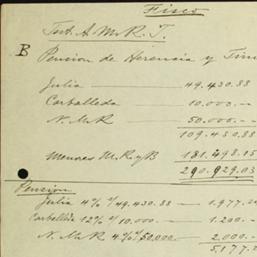 Fisco
Test. A. M. R. T.
B Pension de Herencia y Tim
Julia — 49,430.88
Carballeda 10,000.—
N. M. R 50,000.—
109,430.88
Menores M. R. y B 181,498.15
290,929.03
Pension
Julia 4% s/ 49,430.88 — 1,977.2
Carballeda 12% s/ 10,000.— 1,200.—
N. M. R 4% s/ 50,000. 2,000.—
5,177.2